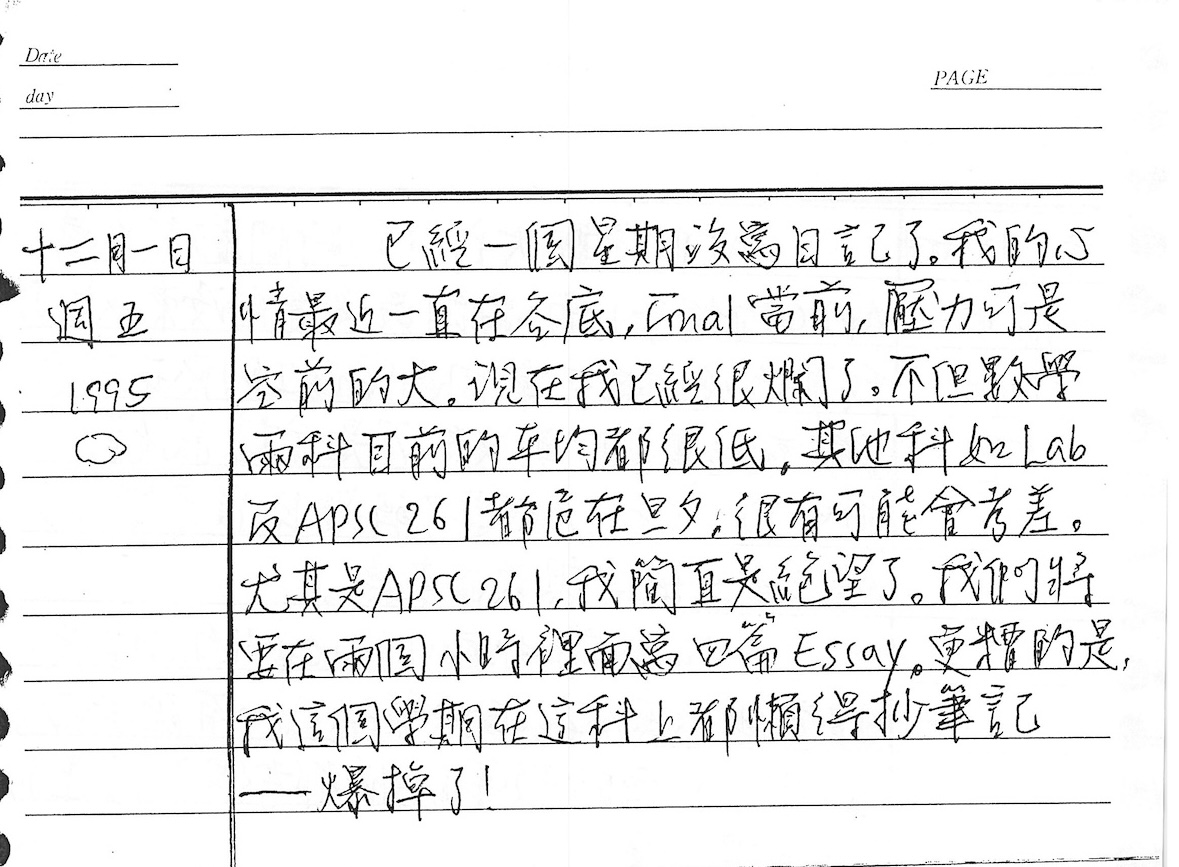 Date
day
PAGE
十二月一日
週五
1995
已經一個星期沒寫日記了。我的心
情最近一直在谷底，Final當前，壓力可是
空前的大。現在我已經很爛了。不但數學
兩科目前的平均都很低，其他科如Lab
及APSC 261都危在旦夕，很有可能會考差。
尤其是APSC 261，我簡直是絕望了。我們將
要在兩個小時裡面寫四篇Essay。更糟的是，
我這個學期在這科上都懶得抄筆記
——爆掉了！